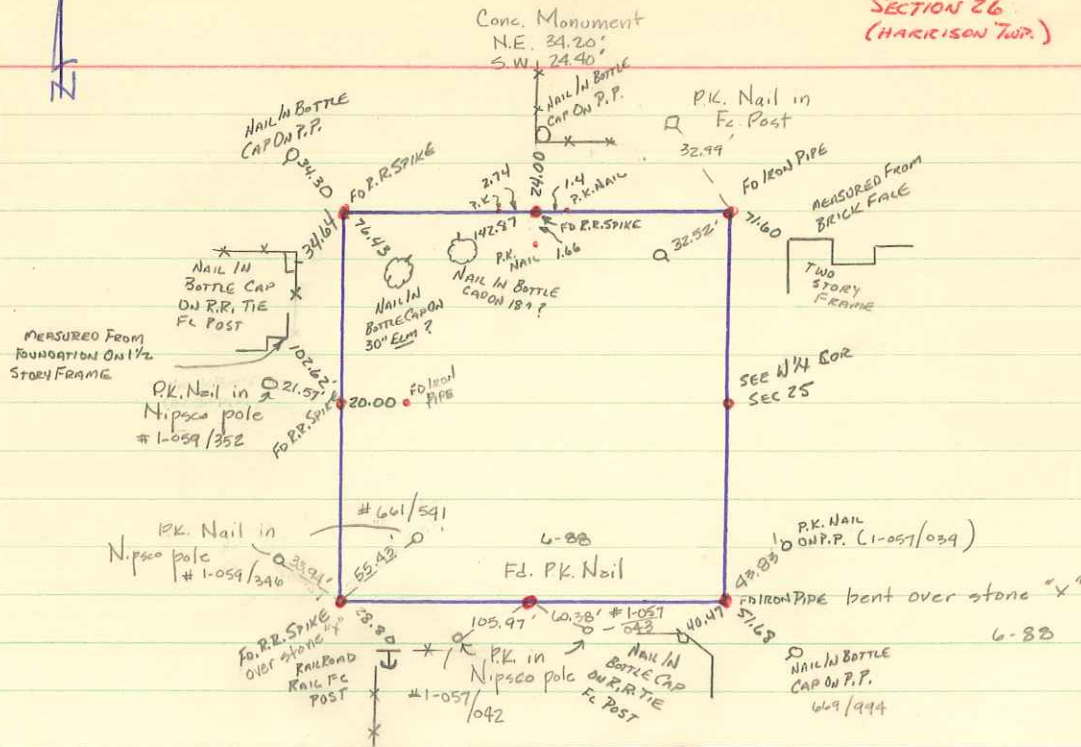 SECTION 26
(HARRISON TWP.)
N
Conc. Monument
N.E. 34.20'
S.W. 24.40'
NAIL IN BOTTLE
CAP ON P.P.
P.K. Nail in
Fc. Post
32.99'
NAIL IN BOTTLE
CAP ON P.P.
34.30
FD R.R. SPIKE
2.74
P.K.
24.00
1.4
P.K. NAIL
FD IRON PIPE
71.60
MEASURED FROM
BRICK FACE
TWO
STORY
FRAME
34.64
76.43
142.87
FD R.R. SPIKE
P.K.
NAIL
1.66
32.52'
NAIL IN
BOTTLE CAP
ON R.R. TIE
FC POST
NAIL IN
BOTTLE CAP ON
30" ELM ?
NAIL IN BOTTLE
CAP ON
MEASURED FROM
FOUNDATION ON 1½
STORY FRAME
102.62'
P.K. Nail in
Nipsco pole
# 1-059/352
21.57'
FD R.R. SPIKE
20.00
FD IRON
PIPE
SEE W¼ COR
SEC 25
# 661/541
P.K. Nail in
Nipsco pole
# 1-059/346
33.94'
55.43'
6-88
Fd. P.K. Nail
P.K. NAIL
ON P.P. (1-057/039)
43.83'
FD IRON PIPE bent over stone "X"
6-88
FD. R.R. SPIKE
over stone "X"
28.80
RAILROAD
RAIL FC
POST
105.97'
60.38'
# 1-057
043
P.K. in
Nipsco pole
# 1-057/
042
40.47
NAIL IN
BOTTLE CAP
ON R.R. TIE
FC POST
51.68
NAIL IN BOTTLE
CAP ON P.P.
669/994